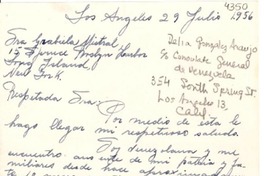 4350
Los Angeles 29 Julio 1956
Sra Gabriela Mistral
13 Spruce Roslyn Harbor
Long Island,
New York.
Delia Gonzalez Araujo
c/o Consulate General
de Venezuela
354 South Spring St.
Los Angeles 13,
Calif.
Respetada Sra:
Por medio de esta le
hago llegar mi respetuoso saludo
Soy venezolana y me
encuentro ausente de mi patria y fa
miliares desde hace